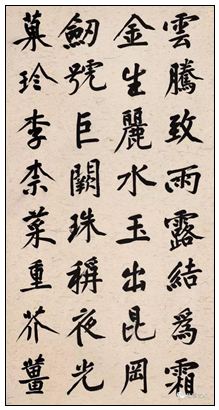 雲騰致雨露結爲霜
金生麗水玉出昆岡
劒號巨闕珠稱夜光
菓珍李柰菜重芥薑